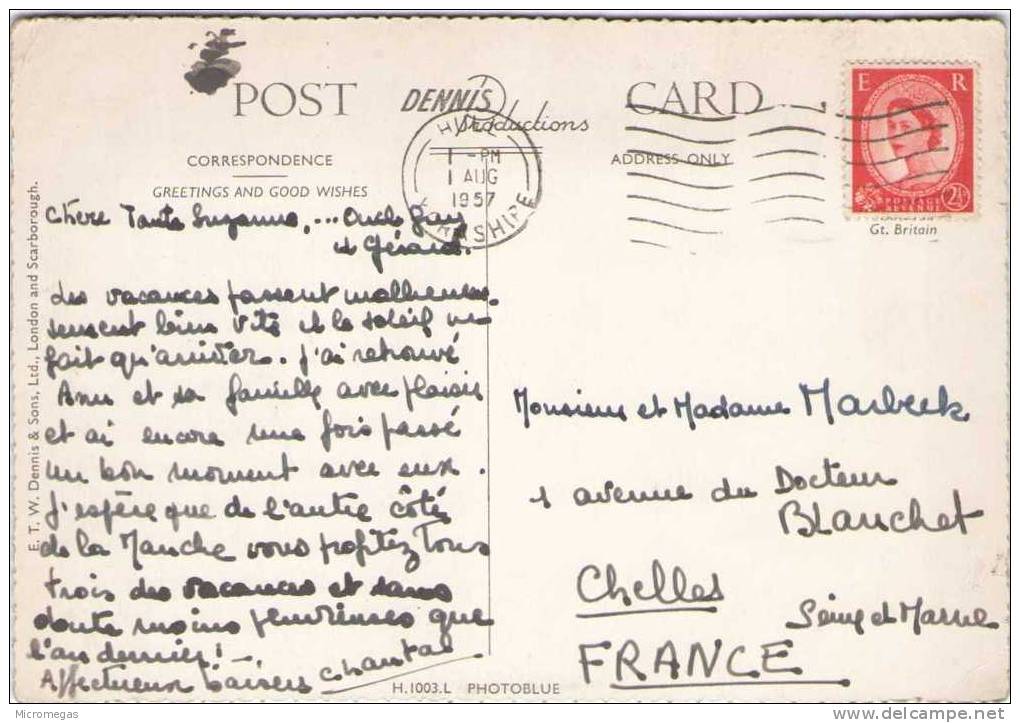 POST CARD
DENNIS
Productions
CORRESPONDENCE
GREETINGS AND GOOD WISHES
ADDRESS ONLY
HULL
1 - PM
1 AUG
1957
YORKSHIRE
E R
POSTAGE REVENUE
2½
Gt. Britain
E. T. W. Dennis & Sons, Ltd., London and Scarborough.
Chère Tante Suzanne, ... Oncle Guy
et Gérard.
Les vacances passent malheureu-
sement bien vite et le soleil ne
fait qu'arriver. J'ai retrouvé
Ann et sa famille avec plaisir
et ai encore une fois passé
un bon moment avec eux.
J'espère que de l'autre côté
de la Manche vous profitez tous
trois des vacances et sans
doute moins pluvieuses que
l'an dernier! -
Affectueux baisers Chantal
Monsieur et Madame Marbeek
1 avenue du Docteur
Blanchet
Chelles
Seine et Marne
FRANCE
H.1003.L PHOTOBLUE
Micromegas
www.delcampe.net